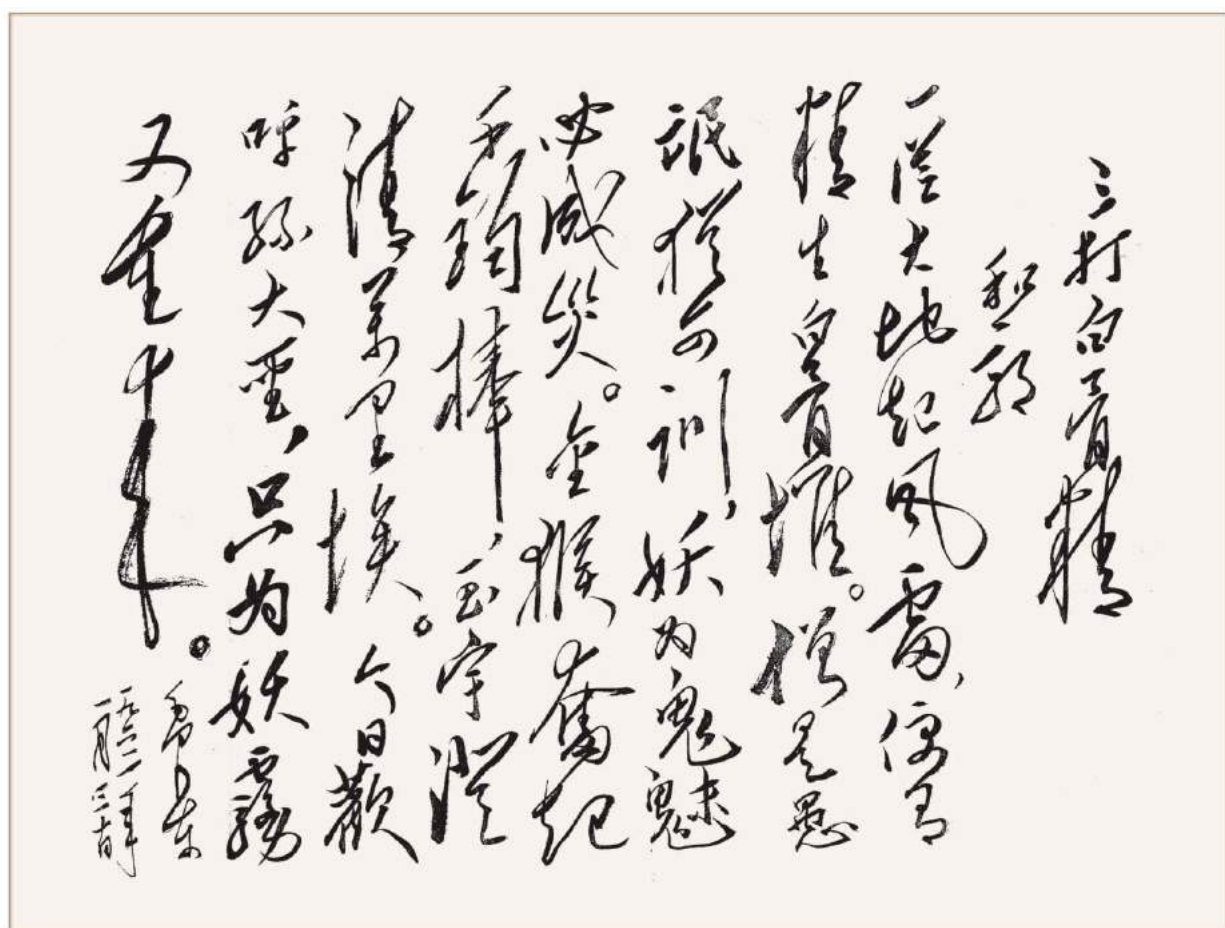 三打白骨精
和郭
一從大地起風雷，便有
精生白骨堆。僧是愚
氓猶可訓，妖为鬼魅
必成災。金猴奮起
千鈞棒，玉宇澄
清萬里埃。今日歡
呼孫大聖，只为妖霧
又重来。
毛澤東